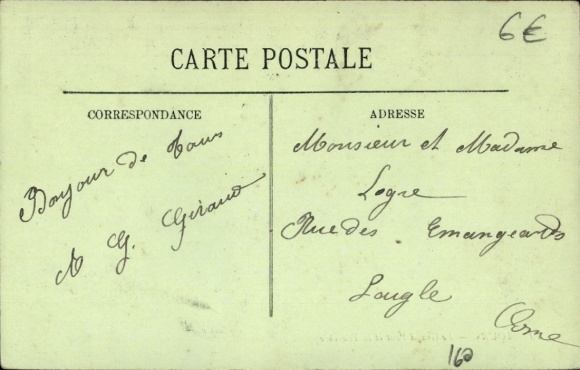 6€
CARTE POSTALE
CORRESPONDANCE
ADRESSE
Bonjour de Tours
A G. Giraud
Monsieur et Madame
Logre
Rue des Emangeards
Laigle
Orne
160